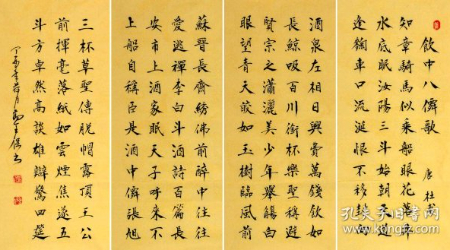 飲中八僊歌 唐 杜甫
知章騎馬似乘船眼花落井
水底眠汝陽三斗始朝天道
逢麴車口流涎恨不移封向
酒泉左相日興費萬錢飲如
長鯨吸百川銜杯樂聖稱避
賢宗之瀟灑美少年舉觴白
眼望青天皎如玉樹臨風前
蘇晉長齋繡佛前醉中往往
愛逃禪李白斗酒詩百篇長
安市上酒家眠天子呼來不
上船自稱臣是酒中僊張旭
三杯草聖傳脫帽露頂王公
前揮毫落紙如雲煙焦遂五
斗方卓然高談雄辯驚四筵